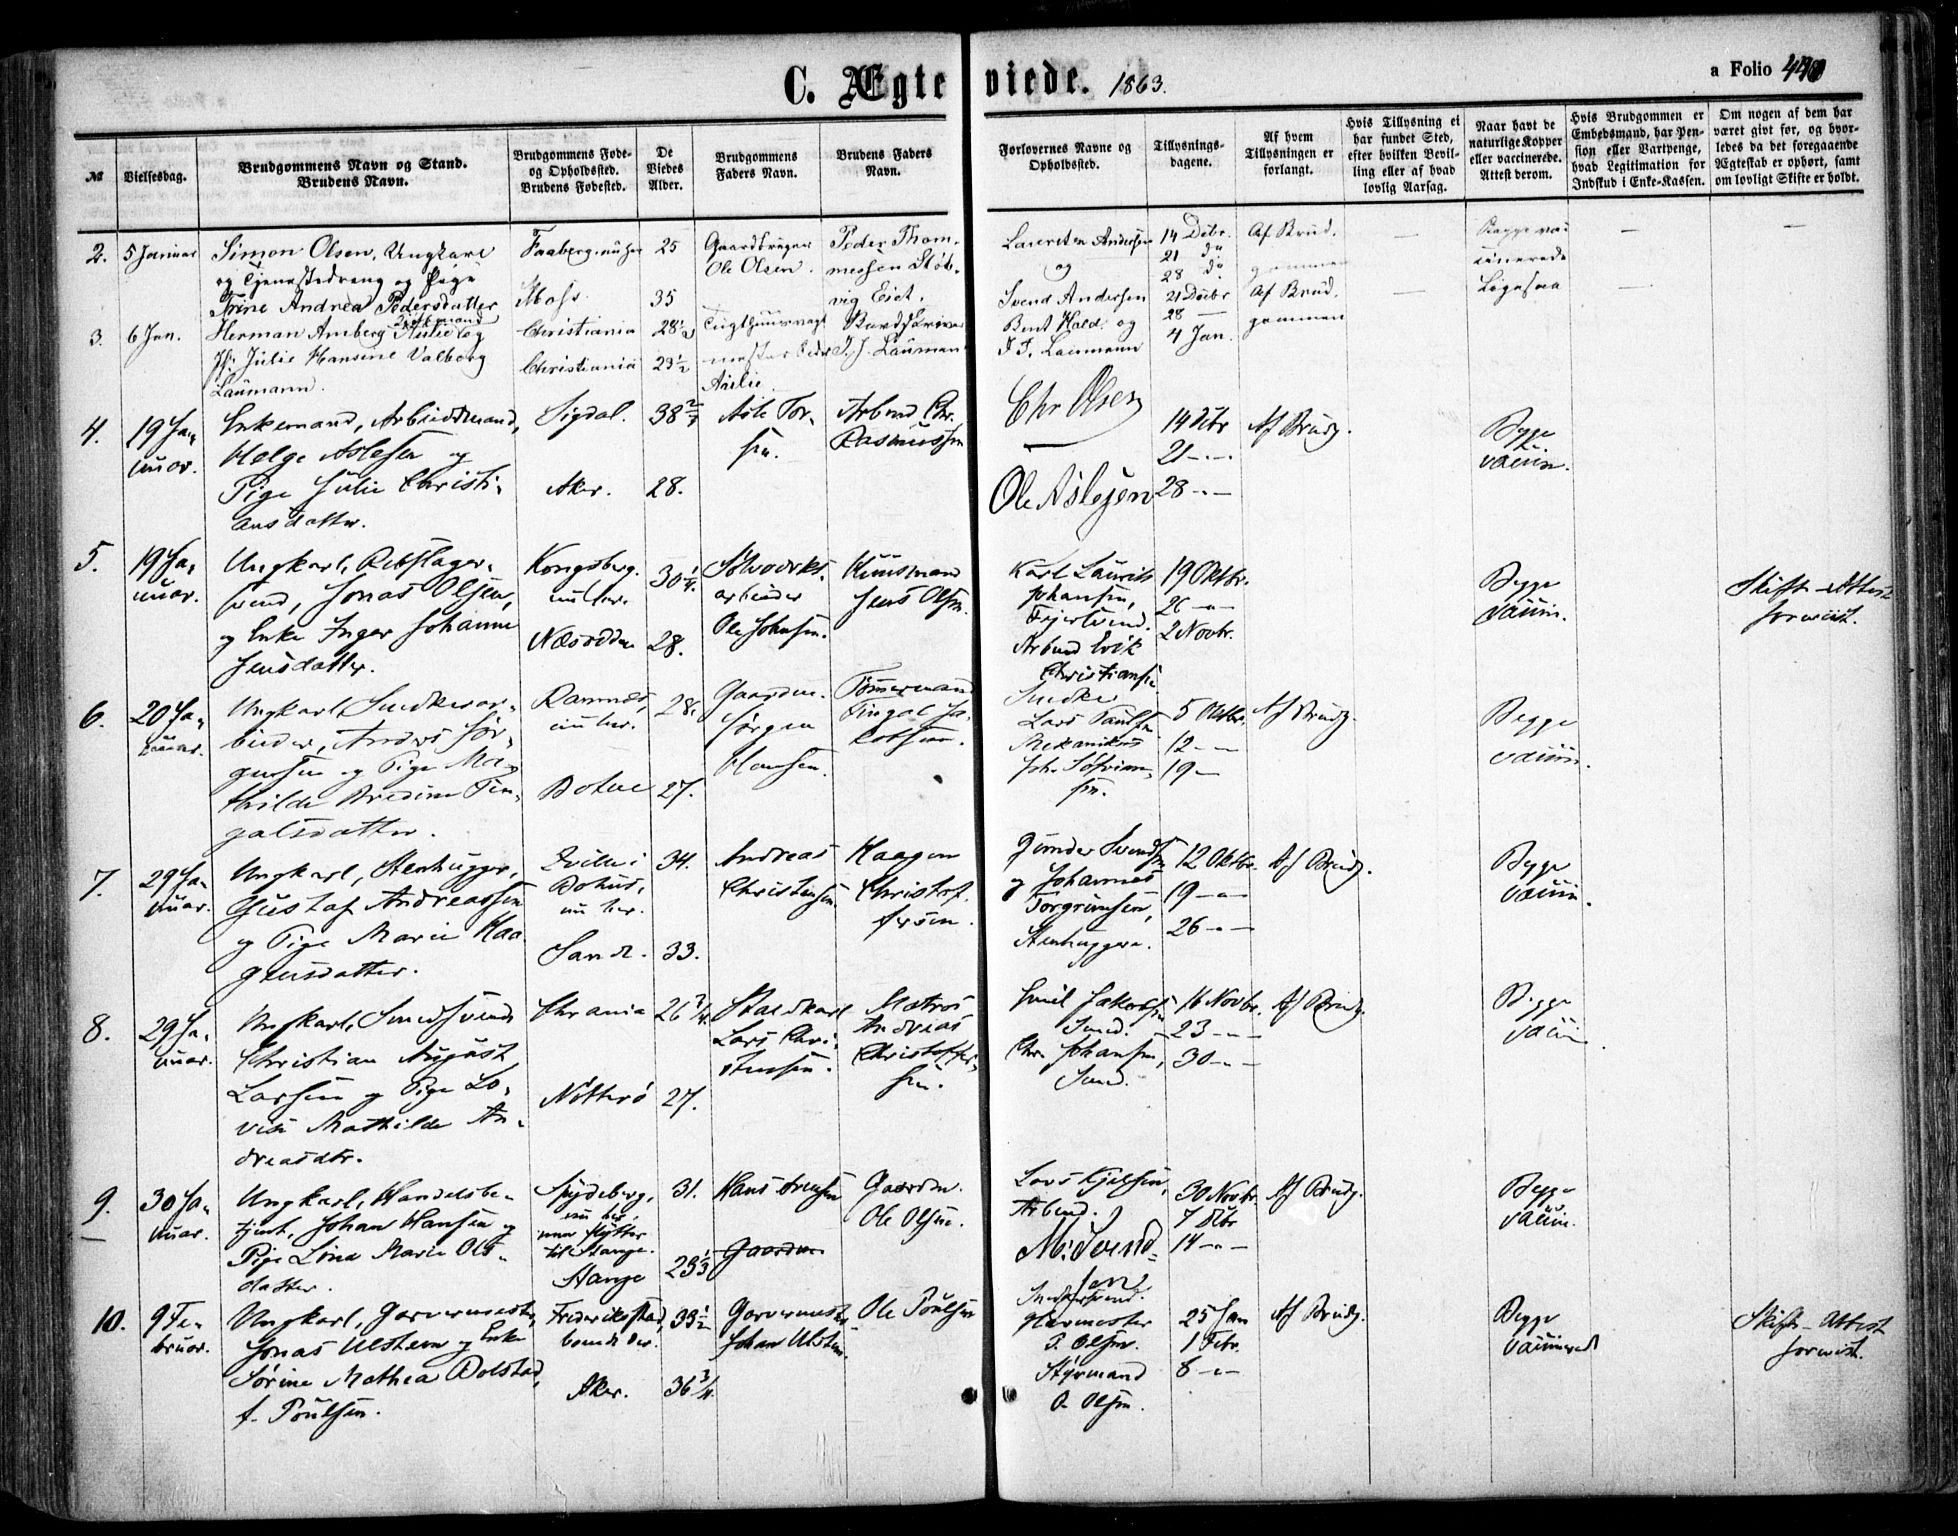 C. Ægteviede. 1863.
a Folio 440
№
Vielsesdag.
Brudgommens Navn og Stand.
Brudens Navn.
Brudgommens Føde-
og Opholdssted.
Brudens Fødested.
De
Viedes
Alder.
Brudgommens
Faders Navn.
Brudens Faders
Navn.
Forlovernes Navne og
Opholdssted.
Tillysnings-
dagene.
Af hvem
Tillysningen er
forlangt.
Hvis Tillysning ei
har fundet Sted,
efter hvilken Bevil-
ling eller af hvad
lovlig Aarsag.
Naar havt de
naturlige Kopper
eller vaccinerede.
Attest derom.
Hvis Brudgommen er
Embedsmand, har Pen-
sion eller Vartpenge,
hvad Legitimation for
Indskud i Enke-Kassen.
Om nogen af dem har
været gift før, og hvor-
ledes da det foregaaende
Ægteskab er ophørt, samt
om lovligt Skifte er holdt.
2. 5 Januar
Simon Olsen, Ungkarl
og Tjenestedreng og Pige
Trine Andrea Pedersdatter
Faaberg, nu her
Moss
25
35
Gaardbruger
Ole Olsen.
Peder Thom-
mesen Stöt-
vig Eiet.
Lauritz Andersen
og
Svend Andersen
14 Debr.
21 do
28 do
Af Brud-
gommen
Begge vac-
cinerede
3. 6 Jan.
Herman Amberg Aulie og
Julie Hansine Valborg
Laumann.
Christiania
Christiania
28 1/2
23 1/2
Aulie
J. Laumann
Bent Hald. og
J. Laumann
21 Debr
28 —
4 Jan.
Af Brud-
gommen
4. 19 Ja-
nuar.
Enkemand, Arbeidsmand,
Helge Aslesen og
Pige Julie Christi-
ansdatter.
Sigdal.
Aker.
38 2/3
28.
Asle Tor-
sen.
Arbmd Chr.
Rasmussen
Chr Olsen
Ole Aslesen
14 Debr
21 -.-
28 -.-
Af Brudg.
Begge
vaccin.
5. 19 Ja-
nuar.
Ungkarl, Rebslager-
svend, Jonas Olsen,
og Enke Inger Johanne
Jensdatter.
Kongsberg.
nu her.
Næsodden
30 1/4.
28.
Sølvverks-
arbeider
Ole Johnsen.
Huusmand
Jens Olsen.
Karl Laurits
Johansen,
Feiersvend.
Arbmd Erik
Christiansen
19 Oktbr.
26 -.-
2 Novbr.
Begge
vaccin.
Skifte-Attest
forevist.
6. 20 Ja-
nuar.
Ungkarl, Snedkerar-
beider, Anders Jør-
gensen og Pige Ma-
thilde Bredine Fin-
galsdatter.
Ramnes,
nu her.
Botne
28.
27.
Gaardm.
Jørgen
Hansen.
Tømmermand
Fingal Ja-
kobsen.
Snedker
Lars Paulsen
Mekanikus
Joh. Sofrian-
sen.
5 Oktbr.
12 -.-
19 -
Af Brudg.
Begge
vaccin.
7. 29 Ja-
nuar.
Ungkarl, Stenhugger,
Gustaf Andreassen
og Pige Marie Haa-
gensdatter.
Bohus,
nu her.
Sande.
34.
33.
Andreas
Christensen.
Haagen
Christof-
fersen.
Gunder Svendsen
og Johannes
Torgrimsen,
Stenhuggere.
12 Oktbr.
19 -.-
26 -.-
Af Brudg.
Begge
vaccin.
8. 29 Ja-
nuar.
Ungkarl, Smedsvend
Christian August
Larsen og Pige Lo-
vise Mathilde An-
dreasdtr.
Chrania
Nötterö
26 3/4.
27.
Staldkarl
Lars Chri-
stensen.
Matros
Andreas
Christoffer-
sen.
Emil Jakobsen
Smed.
Chr. Johansen,
Smed.
16 Novbr.
23 -.-
30 -.-
Af Brudg.
Begge
vaccin.
9. 30 Ja-
nuar.
Ungkarl, Handelsbe-
tjent, Johan Hansen og
Pige Lina Marie Ols-
datter.
Spydeberg,
nu her.
men flytter
til Stange.
Stange
31.
23 1/3
Hans Arnesen
Gaardm
Gaardm.
Ole Olsen.
Lars Kjelsen,
Arbmd.
M. Svend-
sen
Snedkersvend.
30 Novbr.
7 Debr
14 -.-
Af Brudg.
Begge
vaccin.
10. 9 Fe-
bruar.
Ungkarl, Garvermester,
Jonas Ulstein og Enke
Sørine Mathea Bolstad,
f. Poulsen.
Frederiksstad,
boende der.
Aker.
33 1/2
36 3/4.
Garvermester
Johan Ulstein.
Ole Poulsen
Glarmester
P. Olsen.
Styrmand
O. Olsen.
25 Jan
1 Febr.
8 -.-
Af Brudg.
Begge
vaccinered
Skifte-Attest
forevist.